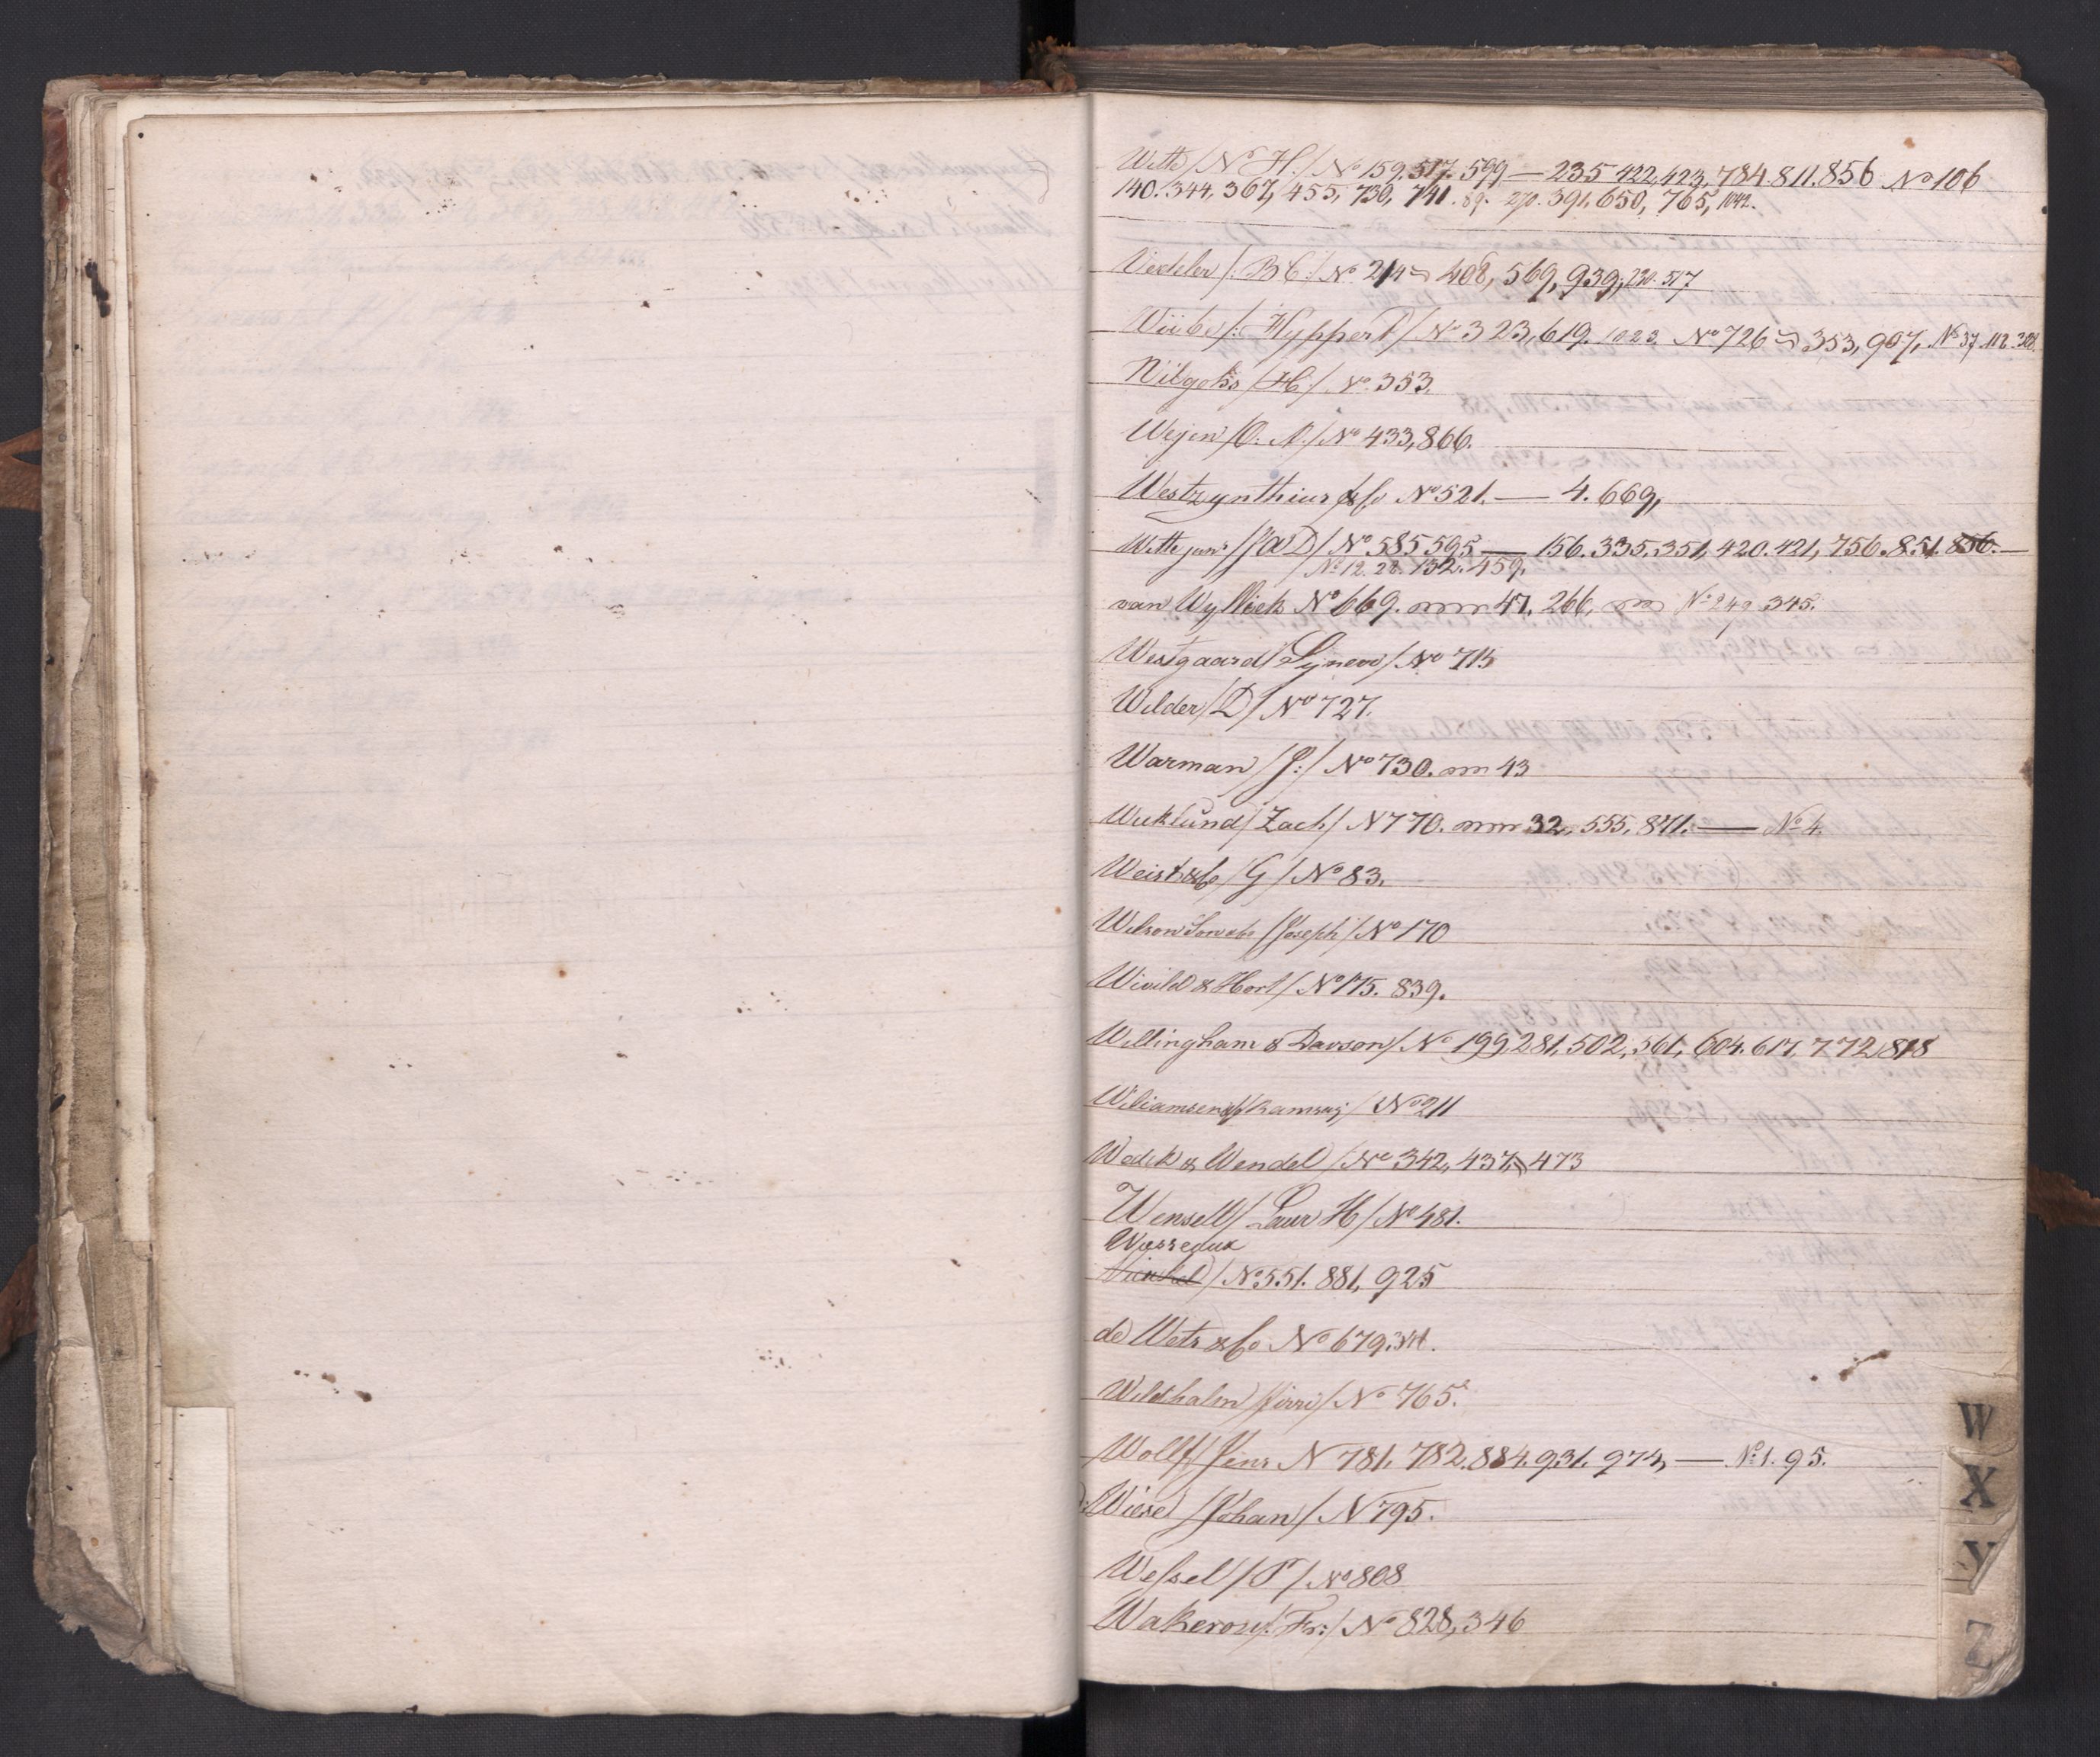 Witt /N. H./ No 159. 517. 599 — 235 422, 423, 784. 811. 856 No 106
140. 344. 367, 455, 730, 741. 89. 270. 391. 650, 765, 1042.
Wedeler /: B C:/ No 214 408, 569, 939, 230. 517
Wiibe /: Hyppert / No 323, 619. 1023. No 726 353, 907, No 37. 112. 328.
/H:/ No. 353.
Wejen /O. N./ No 433, 866.
Westzynthius & Co No 521. — 4. 669,
Witt junr /J a D/ No 585 595 — 156. 335. 351, 420. 421, 756. 851. 856. —
No 12. 28. 132. 459.
van Wyllick No 669. 47. 266, No 249. 345.
Westgaard / Synew / No 715
Wilder /D/ No 727.
Warman /J:/ No 730. 43
Wicklund / Zach / N 770. 32, 555, 871. — No 4.
Weist & Co /G/ No 83.
Wilson Sons /Joseph/ No 170
Wivild & Hort / No 175. 839.
Willingham & Davson / No 199, 281, 502, 561, 604. 617, 772, 818
Wiliamsen & Ramsay / No 211
Wadek & Wendel / No 342, 437, 473
Wensell / Laur H / No 481.
No 551. 881, 925
de Wets & Co No 679. 341.
Wildthalm / No 765.
Wolff / Jens N 781. 782. 884. 931. 974, — No 1. 95.
Wiese / Johan / N 795.
Wessel / P / No 808
Wakerou /: Fr:/ No 828, 346
W
X
Y
Z